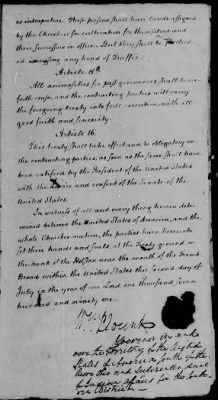 as interpreters. These persons shall have lands assigned
by the Cherokees for cultivation for themselves and
their successors in office. But they shall be precluded
exercising any kind of Traffic.
Article 15th
All animosities for past grievances shall hence
forth cease, and the contracting parties will carry
the foregoing treaty into full execution with all
good faith and sincerity.
Article 16.
This treaty shall take effect and be obligatory on
the contracting parties, as soon as the same shall have
been ratified by the President of the United States
with the advice and consent of the Senate of the
United States.
In witness of all and every thing herein deter
mined between the United States of America, and the
whole Cherokee nation, the parties have hereunto
set their hands and seals, at the Treaty ground on
the bank of the Holston near the mouth of the French
Broad within the United States this second day of
July in the year of our Lord one thousand seven
hundred and ninety one.
Wm Blount
Governor in and
over the Territory of the United
States of America South of the
river Ohio and Superintendant
of Indian Affairs for the South
ern District